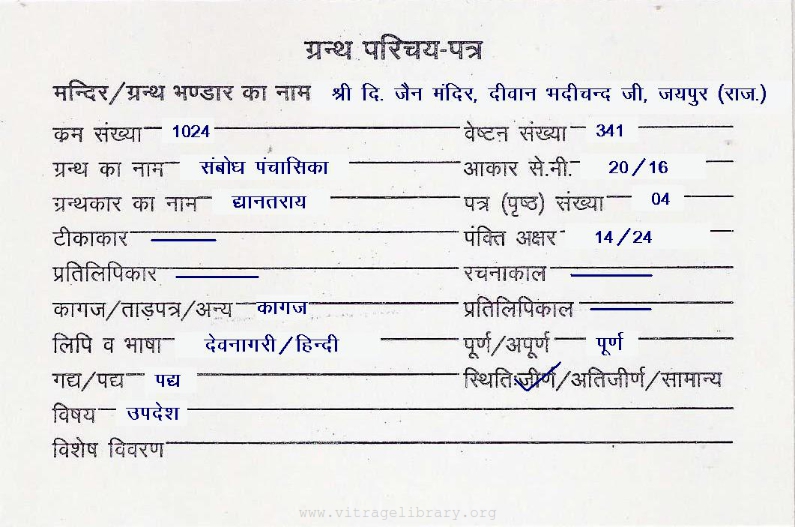 ग्रन्थ परिचय-पत्र
मन्दिर/ग्रन्थ भण्डार का नाम श्री दि. जैन मंदिर, दीवान भदीचन्द जी, जयपुर (राज.)
क्रम संख्या 1024 वेष्टन संख्या 341
ग्रन्थ का नाम संबोध पंचासिका आकार से.मी. 20/16
ग्रन्थकार का नाम द्यानतराय पत्र (पृष्ठ) संख्या 04
टीकाकार पंक्ति अक्षर 14/24
प्रतिलिपिकार रचनाकाल
कागज/ताड़पत्र/अन्य कागज प्रतिलिपिकाल
लिपि व भाषा देवनागरी/हिन्दी पूर्ण/अपूर्ण पूर्ण
गद्य/पद्य पद्य स्थिति:जीर्ण/अतिजीर्ण/सामान्य
विषय उपदेश
विशेष विवरण
www.vitragelibrary.org